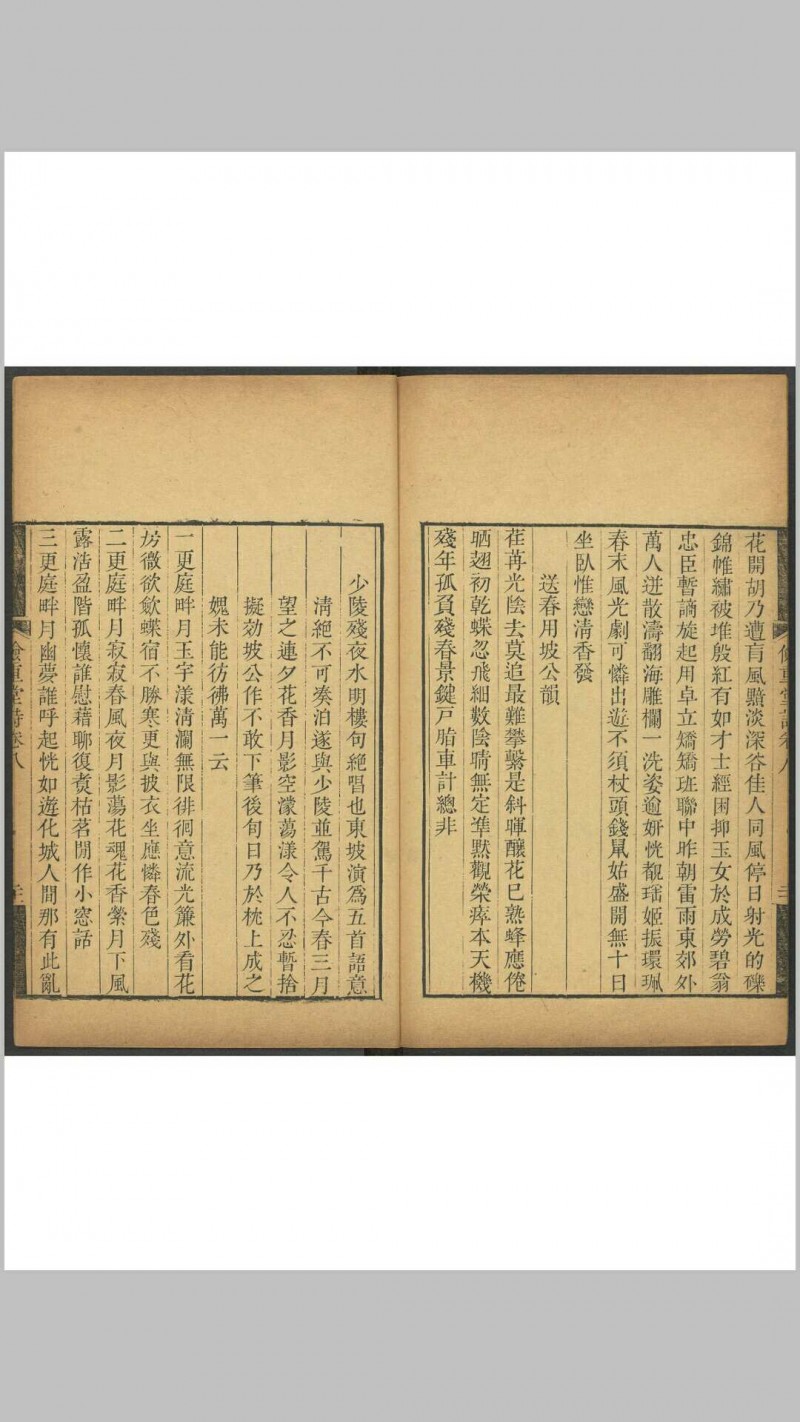 花開胡乃遭盲風黯淡深谷佳人同風停日射光的礫
錦帷繡被堆殷紅有如才士經困抑玉女於成勞碧翁
忠臣暫謫旋起用卓立矯矯班聯中昨朝雷雨東郊外
萬人迸散濤翻海雕欄一洗姿逾妍恍覩瑤姬振環珮
春末風光劇可憐出遊不須杖頭錢鼠姑盛開無十日
坐臥惟戀清香發
送春用坡公韻
荏苒光陰去莫追最難攀繫是斜暉釀花已熟蜂應倦
晒翅初乾蝶忽飛細數陰晴無定準黙觀榮瘁本天機
殘年孤負殘春景鍵戸脂車計總非
少陵殘夜水明樓句絕唱也東坡演爲五首語意
清絕不可湊泊遂與少陵並駕千古今春三月
望之連夕花香月影空濛蕩漾令人不忍暫捨
擬効坡公作不敢下筆後旬日乃於枕上成之
媿未能彷彿萬一云
一更庭畔月玉宇漾清瀾無限徘徊意流光簾外看花
房微欲斂蝶宿不勝寒更與披衣坐應憐春色殘
二更庭畔月寂寂春風夜月影蕩花魂花香縈月下風
露浩盈階孤懷誰慰藉聊復煑枯茗閒作小窓話
三更庭畔月幽夢誰呼起恍如遊化城人間那有此亂
重堂詩卷八